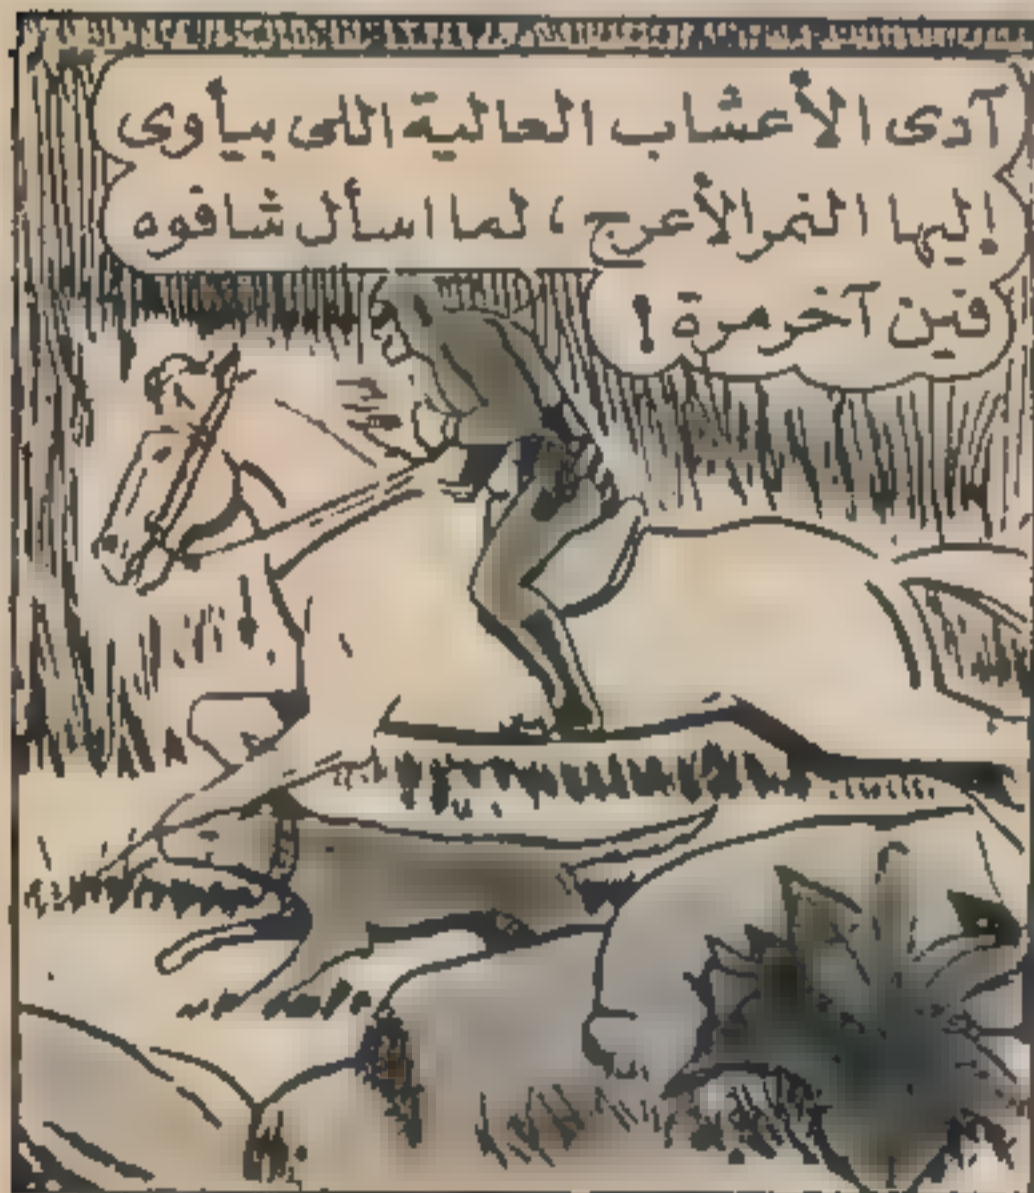 آدى الأعشاب العالية اللى بيأوى
إليها النمر الأعرج ، لما اسأل شافوه
فين آخر مرة !